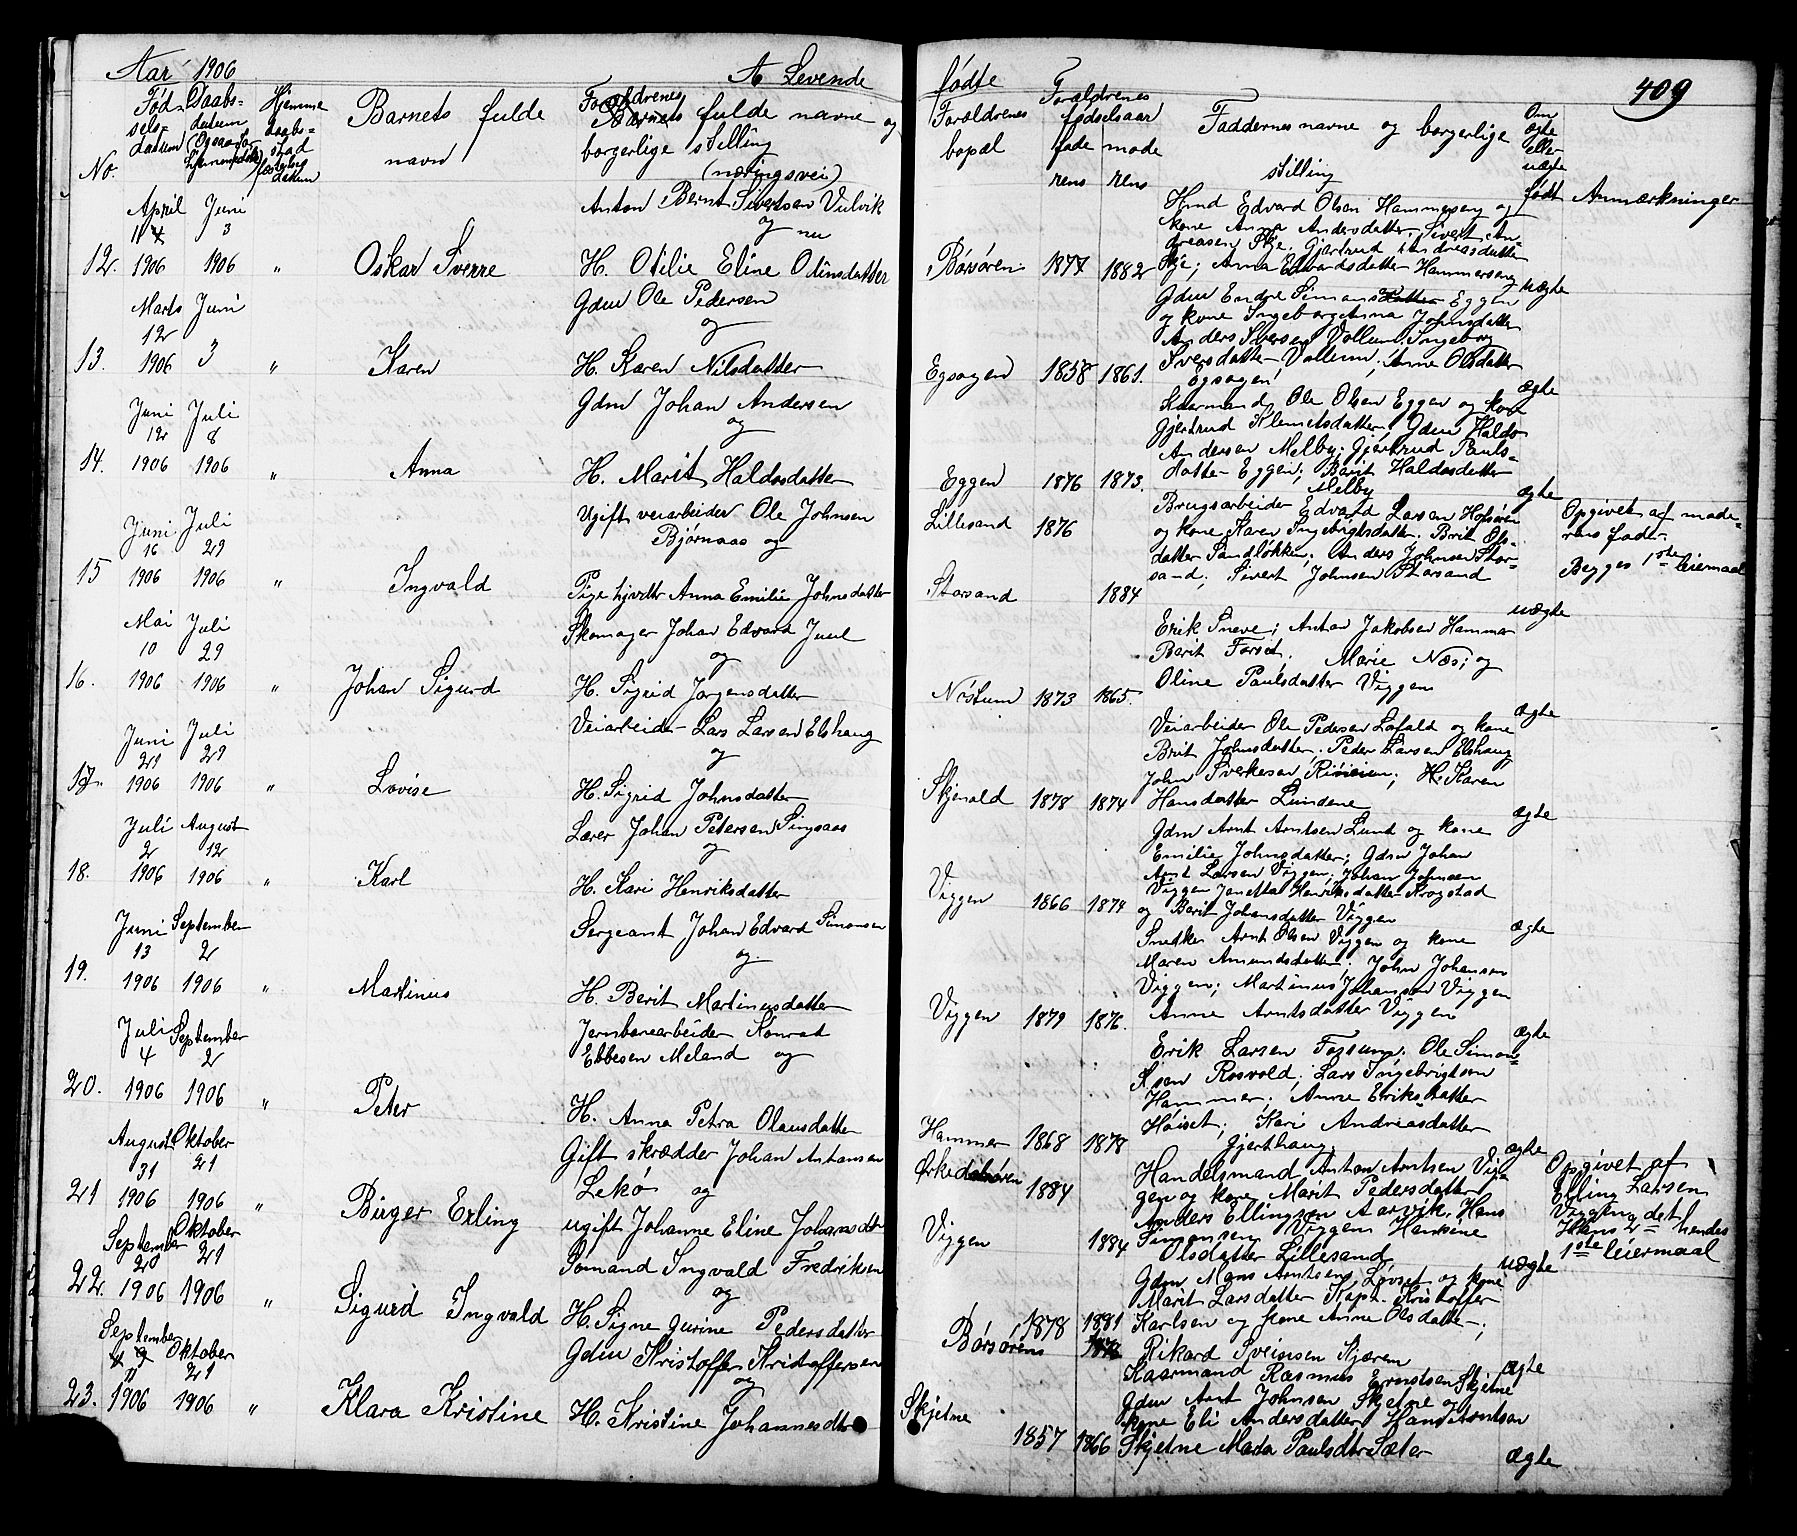 Aar 1906
A Levende
Fødselsdatum
Daabsdatum
Hjemmedaabs
No.
Barnets fulde navn
Forældrenes fulde navne og
borgerlige stilling
(næringsvei)
April 4 1906
Juni 3 1906
Anton Bernt Sivertsen Vulvik
og
12. " Oskar Sverre
H. Otilie Eline Odinsdatter
Marts 12 1906
Juni 3
Gdm Ole Pedersen
og
13. " Karen
H. Karen Nilsdatter
Juni 12 1906
Juli 8 1906
Gdm Johan Andersen
og
14. " Anna
H. Marit Haldosdatter
Juni 16 1906
Juli 29 1906
Ugift veiarbeider Ole Johnsen
Bjørnaas og
15 " Ingvald
Pige hjvdtr Anna Emilie Johnsdatter
Mai 10 1906
Juli 29 1906
Skomager Johan Edvard Juul
og
16. " Johan Sigurd
H. Sigrid Jørgensdatter
Juni 29 1906
Juli 29 1906
Veiarbeider Lars Larsen Elshaug
og
17. " Lovise
H. Sigrid Johnsdatter
Juli 2 1906
August 12 1906
Lærer Johan Petersen Singsaas
og
18. " Karl
H. Kari Henriksdatter
Juni 13 1906
September 2 1906
Sergeant Johan Edvard Simonsen
og
19. " Martinus
H. Berit Martinusdatter
Juli 4 1906
September 2 1906
Jernbanearbeider Konrad
Ebbesen Meland og
20. " Peter
H. Anna Petra Olausdatter
August 31 1906
Oktober 21 1906
Gift skrædder Johan Antonsen
Lekø og
21 " Birger Erling
ugift Johanne Eline Johansdtr
September 2 1906
Oktober 21 1906
Sømand Ingvald Fredriksen
og
22. " Sigurd Ingvald
H. Signe Gurine Pedersdatter
September 11 1906
Oktober 21 1906
Gdm Kristoffer Kristoffersen
og
23. " Klara Kristine
H. Kristine Johannesdtr
fødte
409
Forældrenes bopæl
Forældrenes fødselsaar
faderens
moderens
Faddernes navne og borgerlige
stilling
Om ægte eller uægte født
Anmærkninger
Hmd Edvard Olsen Hammerseng og
kone Anna Andersdatter; Sivert An-
dreasen Skje; Gjertrud Andreasdatter
Børsøren 1877 1882 Skje; Anna Edvardsdatter Hammerseng
uægte
Gdm Endre Simonsdatter Eggen
og kone Ingeborganna Johnsdatter
Anders Iversen Vollum; Ingeborg
Iversdatter Vollum; Anne Olsdatter
Egsagen 1858 1861. Egsagen
ægte
Kaarmand Ole Olsen Eggen og kone
Gjertrud Klemetsdatter; Gdm Haldo
Andersen Melby; Gjertrud Pauls-
datter Eggen; Berit Haldosdatter
Eggen 1876 1873. Melby
ægte
Lillesand 1876
Brugsarbeider Edvard Larsen Hofsøren
og kone Karen Ingebrigtsdatter; Brit Ols-
datter Sandløkken; Anders Johnsen Stor-
sand; Sivert Johnsen Storsand
Storsand 1884
uægte
Opgivet af mode-
rens fader
Begges 1ste leiermaal
Erik Sneve; Anton Jakobsen Hammer
Berit Forset. Marie Næs; og
Oline Paulsdatter Viggen
Nostum 1873 1865.
ægte
Veiarbeider Ole Pedersen Lofald og kone
Brit Johnsdatter; Peder Larsen Elshaug
John Sverkesen; H. Karen
Skjenald 1878 1874 Hansdatter Lundene
ægte
Gdm Arnt Arntsen Lund og kone
Emilie Johnsdatter; Gdm Johan
Arnt Larsen Viggen; Johan Johnsen
Viggen Janetta Henriksdatter Krogstad
Viggen 1866 1874 og Berit Johansdatter Viggen
ægte
Snedker Arnt Olsen Viggen og kone
Maren Amundsdatter; John Johansen
Viggen; Martinus Johansen Viggen
Viggen 1879 1876. Anne Arntsdatter Viggen
ægte
Erik Larsen Fossum; Ole Simon-
sen Rosvold; Lars Ingebrigtsen
Hammer; Anne Eriksdatter
Høiset; Kari Andreasdatter
Hammer 1868 1878 Gjerthaug
ægte
Ørkedalsøren 1884
Handelsmand Anton Arntsen Vig-
gen og kone Marit Pedersdatter
Anders Ellingsen Aarvik. Hans
Simonsen Viggen Hansine
Viggen 1884 Olsdatter Lillesand
uægte
Opgivet af
Elling Larsen
Viggen, det
Hans 2det hendes
1ste leiermaal
Gdm Mons Arntsen Løvset og kone
Marit Larsdatter Kapt. Kristoffer
Børsørens 1878 1881 Karlsen og frue Anne Olsdatter;
Rikard Sveinsen Kjæren
ægte
Kaarmand Rasmus Erntsen Skjetne
Gdm Arnt Johnsen Skjetne og
kone Eli Andersdatter Hans Arntsen
Skjetne 1857 1866 Skjetne Marta Paulsdtr Sæter
ægte